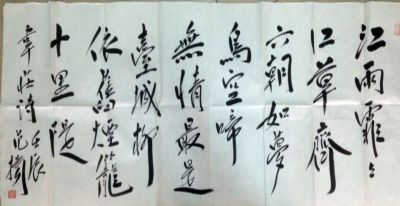 江雨霏々
江草齊
六朝如夢
鳥空啼
無情最是
臺城柳
依舊煙籠
十里隄
韋莊詩 壬辰